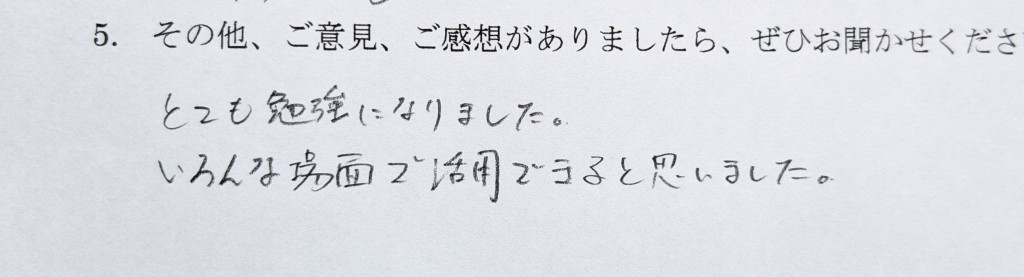 5. その他、ご意見、ご感想がありましたら、ぜひお聞かせくださ
とても勉強になりました。
いろんな場面で活用できると思いました。